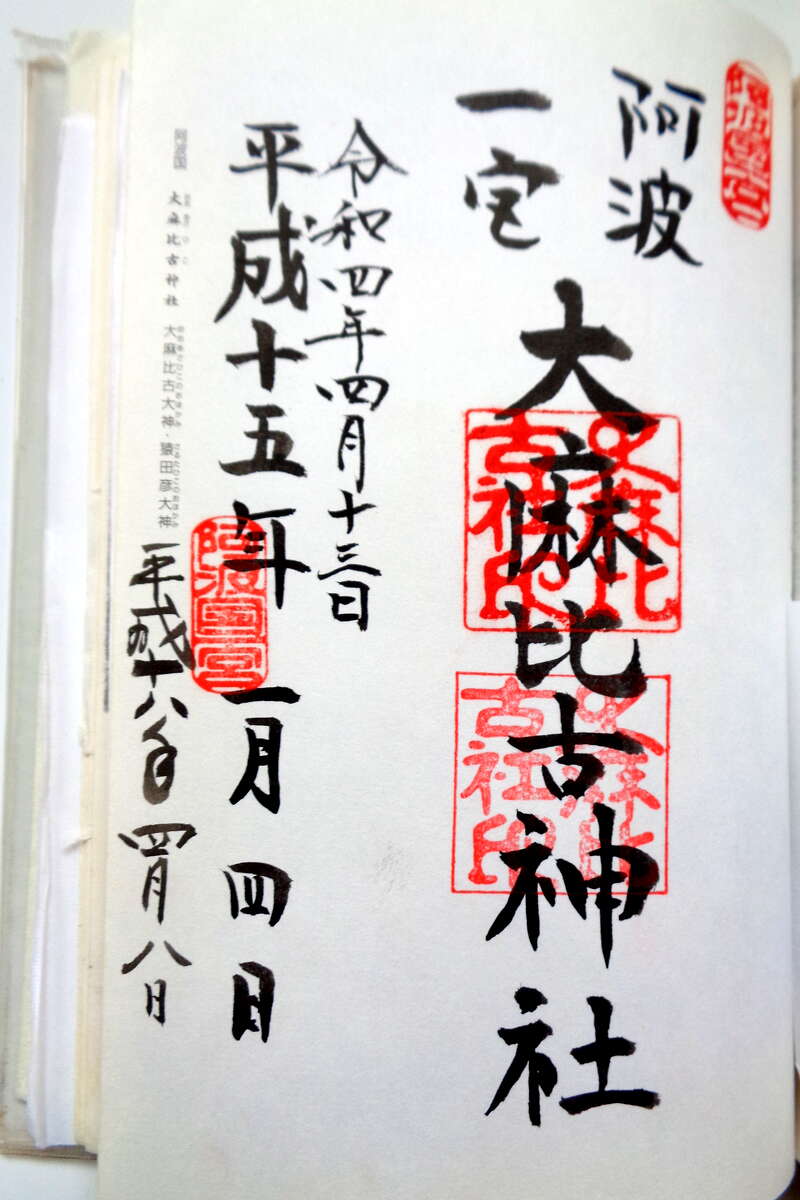 阿波
一宮
大麻比古神社
大麻比古神社印
古社印
令和四年四月十三日
平成十五年一月四日
阿波国一宮
平成十八年四月八日
阿波国 大麻比古神社 大麻比古大神・猿田彦大神